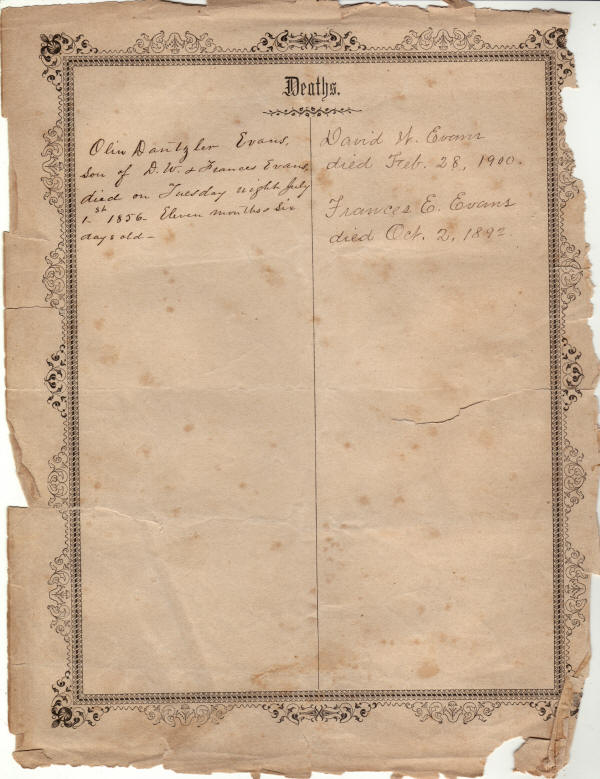 Deaths.
Olin Dantzler Evans,
son of D. W. & Frances Evans,
died on Tuesday night July
1st 1856 - Eleven months & six
days old -
David W. Evans
died Feb. 28, 1900.
Frances E. Evans
died Oct. 2, 1892